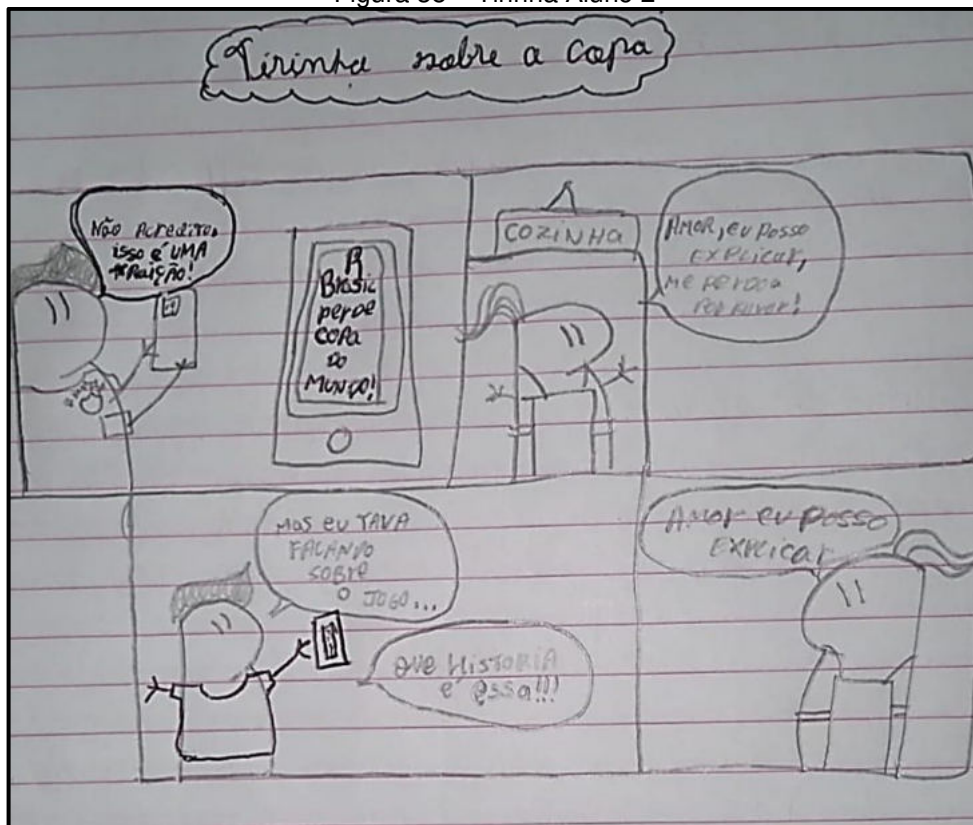 Tirinha sobre a copa
Não Acredito,
isso é UMA
traição!
Brasil
perde
COPA
DO
MUNDO!
COZINHA
AMOR, eu posso
EXPLICAR,
me perdoa
por favor!
Mas eu TAVA
FALANDO
SOBRE
O JOGO...
QUE HISTORIA
é essa!!!
AMOR eu posso
EXPLICAR